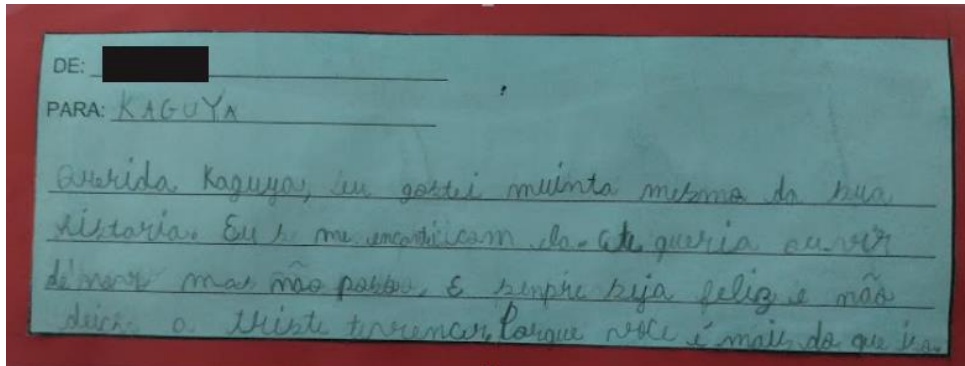 DE:
PARA: KAGUYA
Querida Kaguya, eu gostei muinto mesmo da sua
história. Eu me encantei com ela. Até queria ouvir
de novo mas não posso. E sempre seja feliz e não
deixe a triste te vencer, Porque você é mais do que isso.